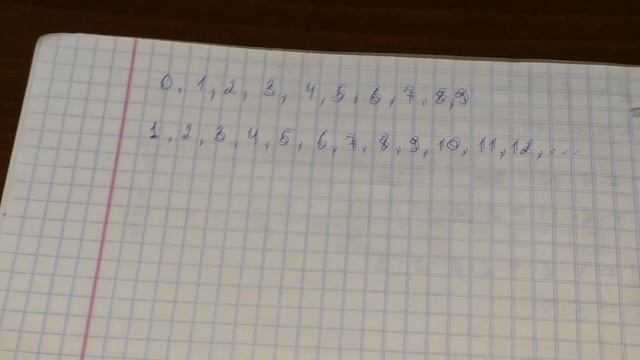 0, 1, 2, 3, 4, 5, 6, 7, 8, 9
1, 2, 3, 4, 5, 6, 7, 8, 9, 10, 11, 12, ...